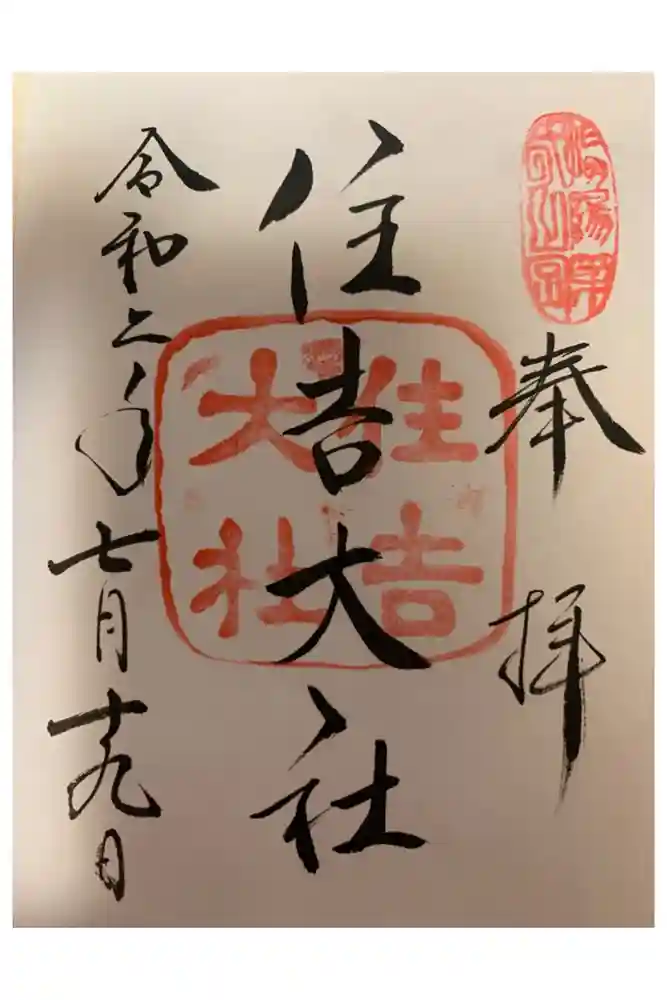 奉拝
住吉大社
住吉
大社
令和二年七月十九日